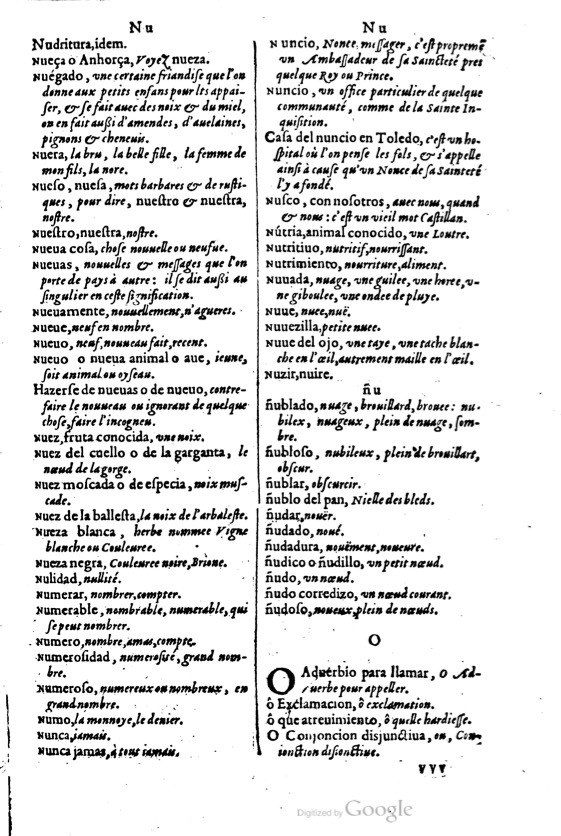 Nu
Nudritura, idem.
Nueça o Anhorça, Voyez nueza.
Nuégado, vne certaine friandise que l'on
donne aux petits enfans pour lts appai-
ser, & se fait auec des noix & du miel,
on en fait außi d'amendes, d'auelaines,
pignons & cheneuis.
Nuera, la bru, la belle fille, la femme de
mon fils, la nore.
Nueso, nuesa, mots barbares & de rusti-
ques, pour dire, nuestro & nuestra,
nostre.
Nuestro, nuestra, nostre.
Nueua cosa, chose nouuelle ou neufue.
Nueuas, nouuelles & messages que l'on
porte de pays à autre: il se dit außi au
singulier en ceste signification.
Nueuamente, nouuellement, n'agueres.
Nueue, neuf en nombre.
Nueuo, neuf, nouueau fait, recent.
Nueuo o nueua animal o aue, ieune,
soit animal ou oyseau.
Hazerse de nueuas o de nueuo, contre-
faire le nouueau ou ignorant de quelque
chose, faire l'incogneu.
Nuez, fruta conocida, vne noix.
Nuez del cuello o de la garganta, le
nœud de la gorge.
Nuez moscada o de especia, noix mus-
cade.
Nuez de la ballesta, la noix de l'arbaleste.
Nueza blanca, herbe nommee Vigne
blanche ou Couleuree.
Nueza negra, Couleuree noire, Brione.
Nulidad, nullité.
Numerar, nombrer, compter.
Numerable, nombrable, numerable, qui
se peut nombrer.
Numero, nombre, amas, compte.
Numerosidad, numerosité, grand nom-
bre.
Numeroso, numereux ou nombreux, en
grand nombre.
Numo, la monnoye, le denier.
Nunca, iamais.
Nunca jamas, à tous iamais.
Nu
Nuncio, Nonce, messager, c'est propremẽt
vn Ambassadeur de sa Saincteté pres
quelque Roy ou Prince.
Nuncio, vn office particulier de quelque
communauté, comme de la Sainte In-
quisition.
Casa del nuncio en Toledo, c'est vn ho-
spital où l'on pense les fols, & s'appelle
ainsi à cause qu'vn Nonce de sa Sainteté
l'y a fondé.
Nusco, con nosotros, auec nous, quand
& nous: c'est vn vieil mot Castillan.
Nútria, animal conocido, vne Loutre.
Nutritiuo, nutritif, nourrissant.
Nutrimiento, nourriture, aliment.
Nuuada, nuage, vne guilee, vne horee, v-
ne giboulee, vne ondee de pluye.
Nuue, nuee, nuë.
Nuuezilla, petite nuee.
Nuue del ojo, vne taye, vne tache blan-
che en l'œil, autrement maille en l'œil.
Nuzir, nuire.
ñu
ñublado, nuage, brouillard, brouee: nu-
bilex, nuageux, plein de nuage, som-
bre.
ñubloso, nubileux, plein de brouillart,
obscur.
ñublar, obscurcir.
ñublo del pan, Nielle des bleds.
ñudar, nouër.
ñudado, noué.
ñudadura, nouëment, noueure.
ñudico o ñudillo, vn petit nœud.
ñudo, vn nœud.
ñudo corredizo, vn nœud courant.
ñudoso, noueux, plein de nœuds.
O
O Aduerbio para llamar, O Ad-
uerbe pour appeller.
ô Exclamacion, ô exclamation.
ô que atreuimiento, ô quelle hardiesse.
O Conjoncion disjunctiua, ou, Con-
ionction disionctiue.
VVV
Digitized by Google